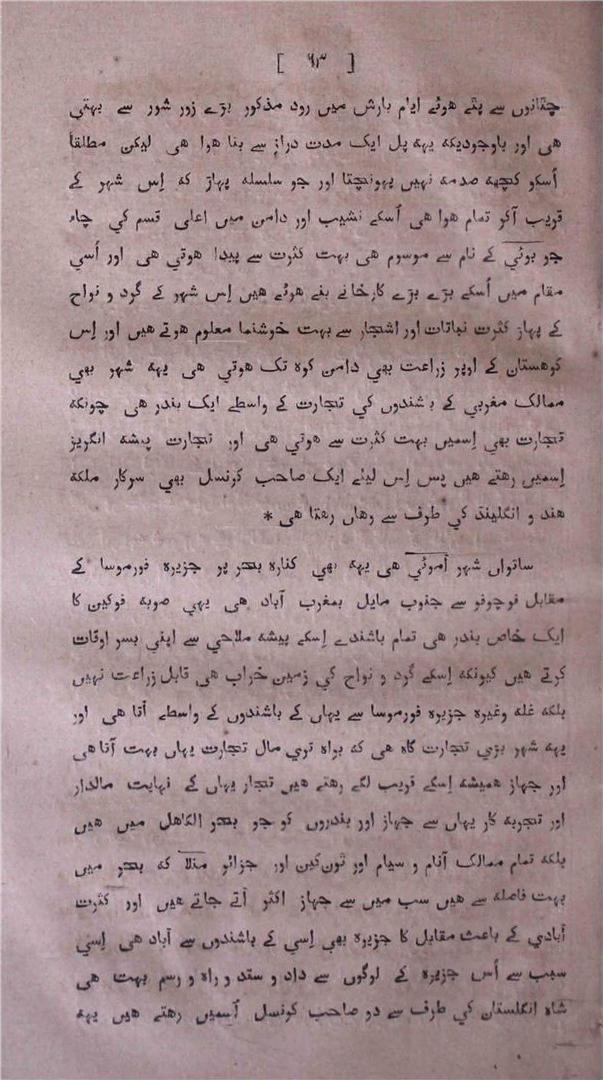 [ ٦٣ ]
چٹانوں سے پٹے هوئے ایام بارش میں رود مذکور بڑے زور شور سے بہتي
هی اور باوجودیکه یہه پل ایک مدت دراز سے بنا هوا هی لیکن مطلقاً
اُسکو کچہه صدمه نہیں پہونچتا اور جو سلسله پہاڑ که اِس شہر کے
قریب آکو تمام هوا هی اُسکے نشیب اور دامن میں اعلی قسم کي چاء
جو بوئي کے نام سے موسوم هی بہت کثرت سے پیدا هوتي هی اور اُسي
مقام میں اُسکے بڑے بڑے کارخانے بنے هوئے هیں اِس شہر کے گرد و نواح
کے پہاڑ کثرت نباتات اور اشجار سے بہت خوشنما معلوم هوتے هیں اور اِس
کوهستان کے اوپر زراعت بھي دامن کوه تک هوتي هی یہه شہر بھي
ممالک مغربي کے باشندوں کي تجارت کے واسطے ایک بندر هی چونکه
تجارت بھي اِسمیں بہت کثرت سے هوتي هی اور تجارت پیشه انگریز
اِسمیں رهتے هیں پس اِس لیئے ایک صاحب کونسل بھي سرکار ملکه
هند و انگلینڈ کي طرف سے وهاں رهتا هی *
ساتواں شہر آموئي هی یہه بھي کناره بحر پر جزیره فورموسا کے
مقابل فوچوفو سے جنوب مایل بمغرب آباد هی یہي صوبه فوکین کا
ایک خاص بندر هی تمام باشندے اِسکے پیشه ملاحي سے اپني بسر اوقات
کرتے هیں کیونکه اِسکے گرد و نواح کي زمین خراب هی قابل زراعت نہیں
بلکه غله وغیره جزیره فورموسا سے یہاں کے باشندوں کے واسطے آتا هی اور
یہه شہر بڑي تجارت گاه هی که براه تري مال تجارت یہاں بہت آتا هی
اور جہاز همیشه اِسکے قریب لگے رهتے هیں تجار یہاں کے نہایت مالدار
اور تجربه کار یہاں سے جہاز اور بندروں کو جو بحر الکاهل میں هیں
بلکه تمام ممالک آنام و سیام اور ٹون کین اور جزائر مثلاً که بحر میں
بہت فاصله سے هیں سب میں سے جہاز اکثر آتے جاتے هیں اور کثرت
آبادي کے باعث مقابل کا جزیره بھي اِسي کے باشندوں سے آباد هی اِسي
سبب سے اُس جزیره کے لوگوں سے داد و ستد و راه و رسم بہت هی
شاه انگلستان کي طرف سے دو صاحب کونسل اُسمیں رهتے هیں یہه